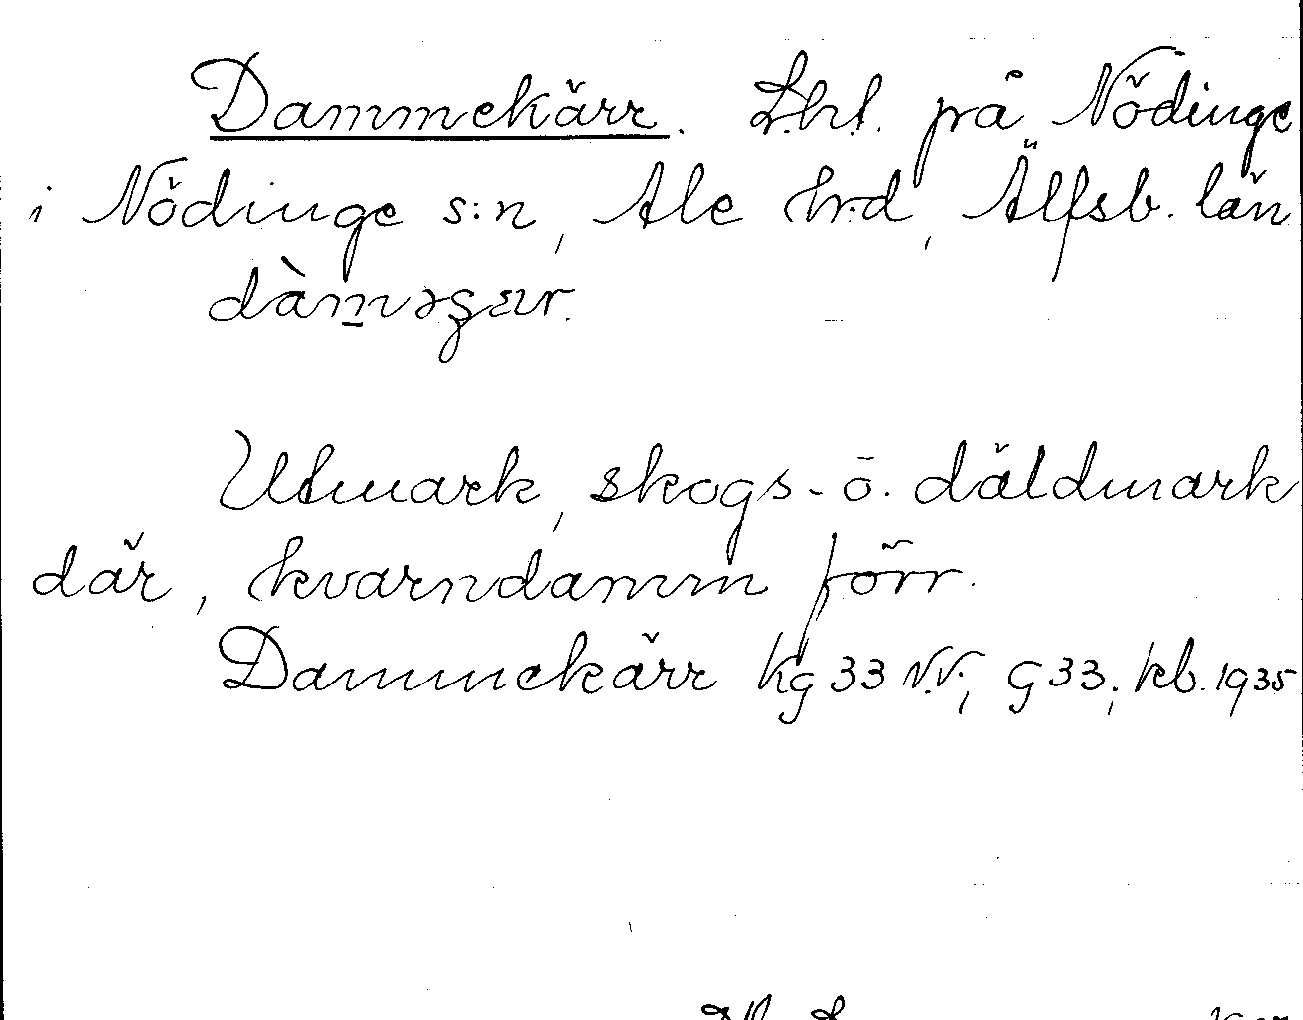 Dammekärr. L.h.t. på Nödinge
i Nödinge s:n, Ale hrd, Älfsb. län
Utmark, skogs- o. däldmark
där, kvarndamm förr.
Dammekärr Kg 33 N.V.; G 33; kb. 1935